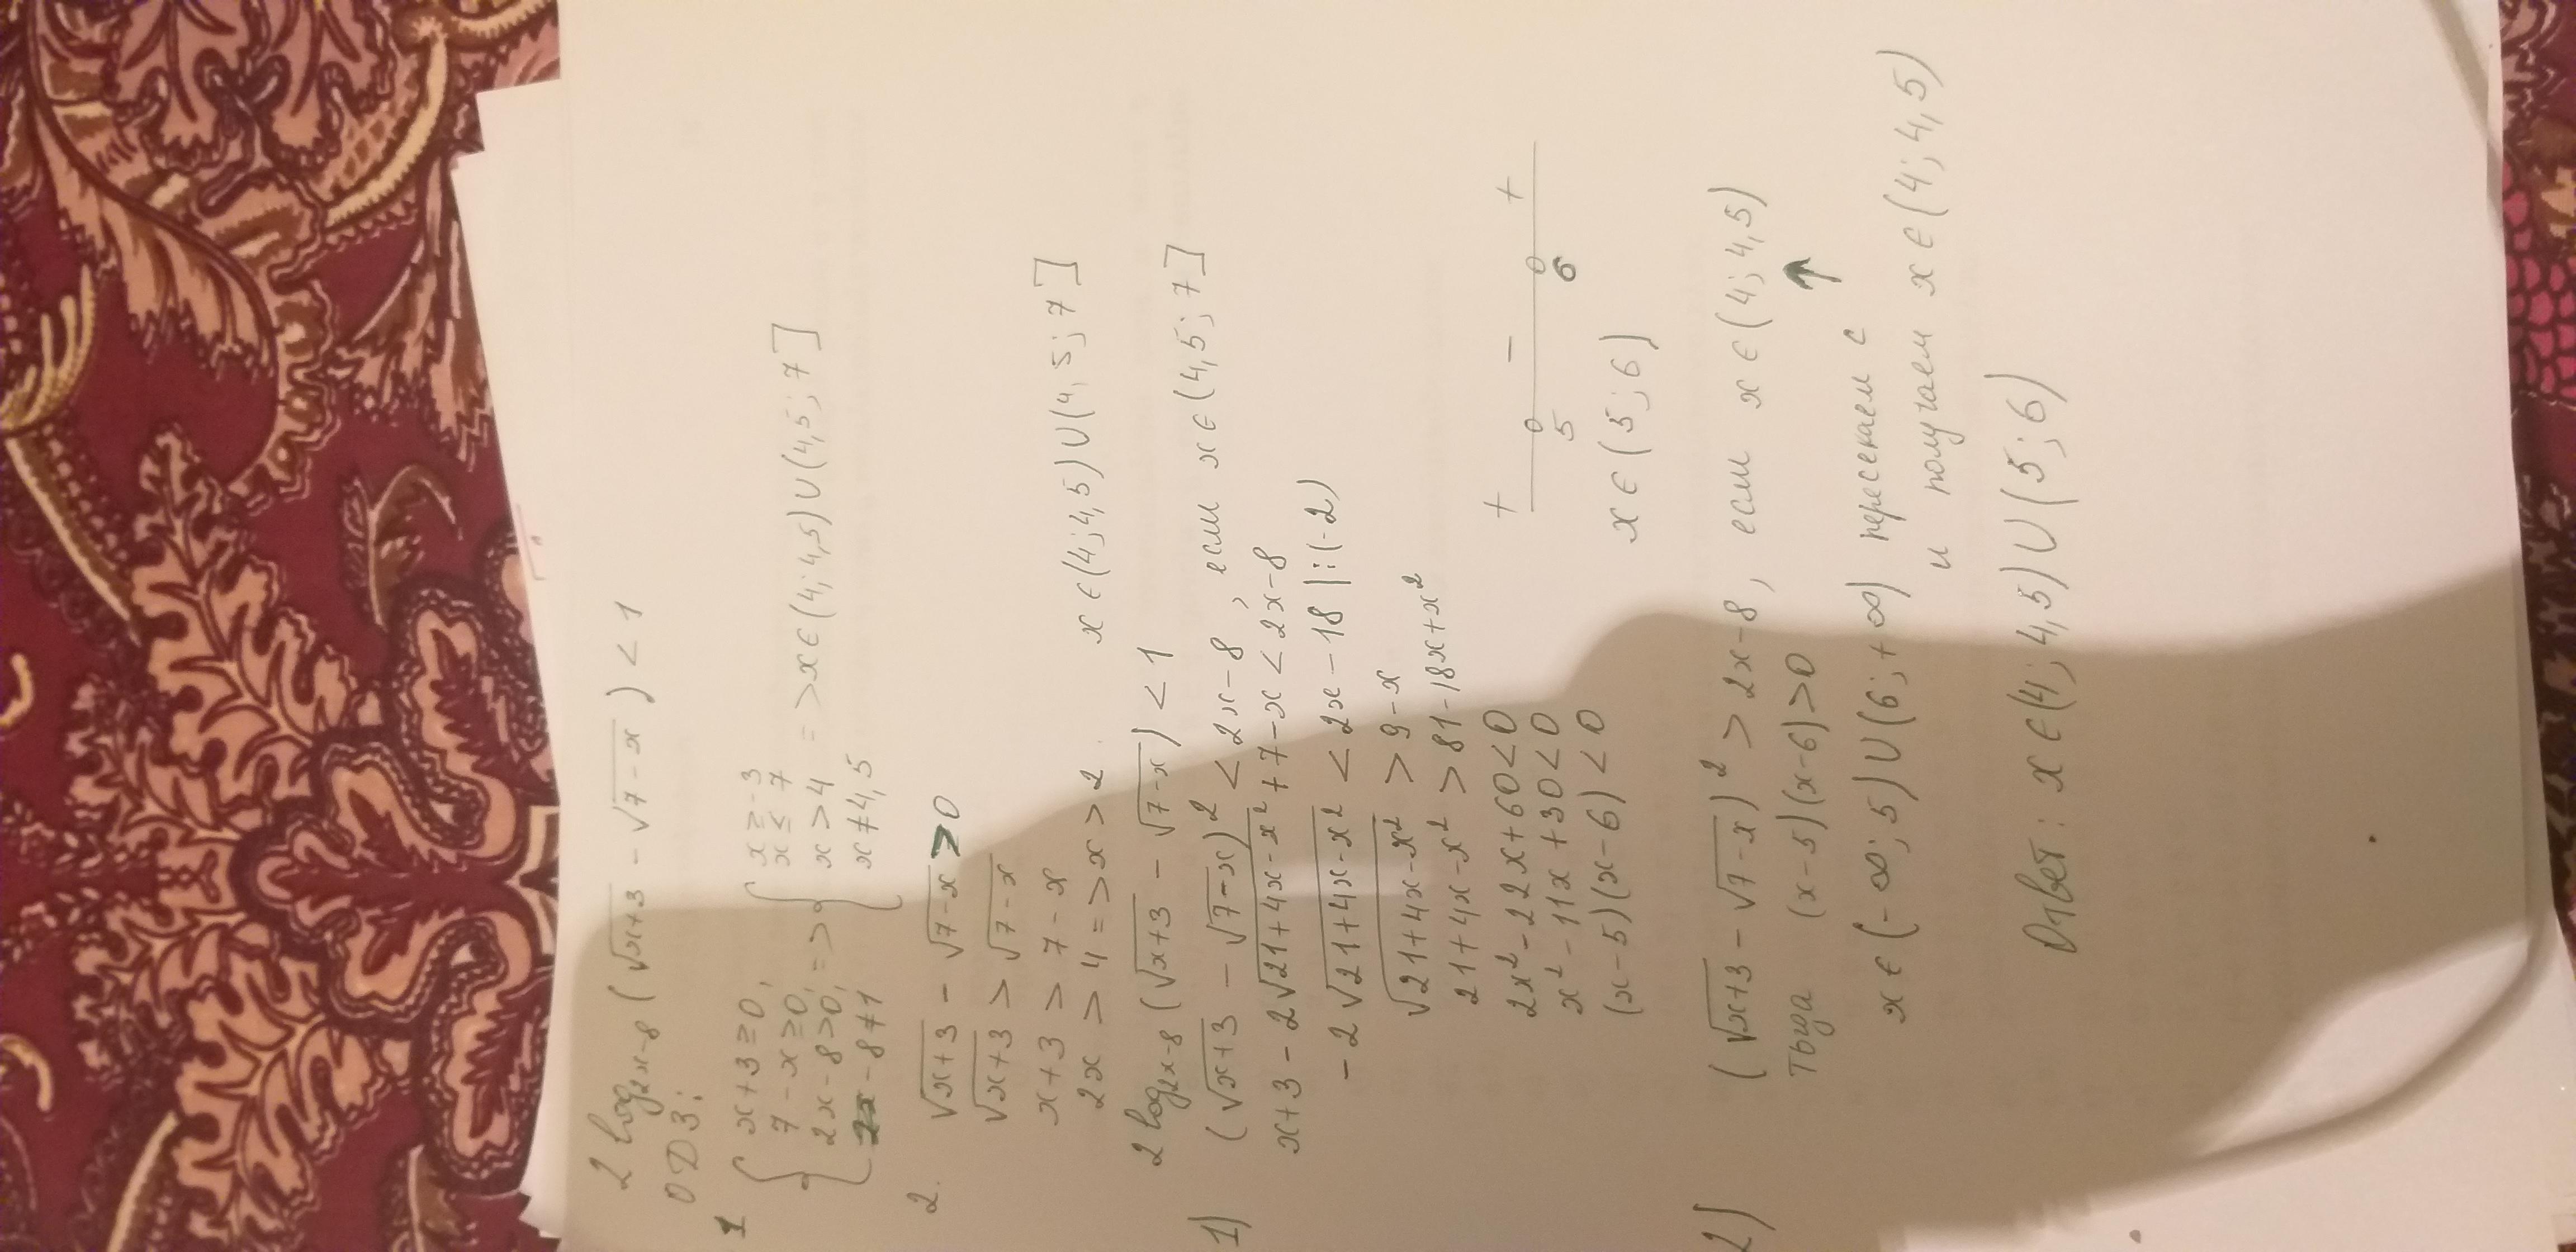 2 log₂ₓ₋₈ (√x+3 − √7−x) < 1
ОДЗ:
1 { x+3 ≥ 0, { x ≥ −3
7−x ≥ 0, x ≤ 7
2x−8 > 0, => x > 4 => x ∈ (4; 4,5) ∪ (4,5; 7]
2x − 8 ≠ 1 x ≠ 4,5
2. √x+3 − √7−x > 0
√x+3 > √7−x
x+3 > 7−x
2x > 4 => x > 2. x ∈ (4; 4,5) ∪ (4,5; 7]
2 log₂ₓ₋₈ (√x+3 − √7−x) < 1
1) (√x+3 − √7−x)² < 2x−8, если x ∈ (4,5; 7]
x+3 − 2√21+4x−x² + 7−x < 2x−8
−2√21+4x−x² < 2x − 18 |:(−2)
√21+4x−x² > 9−x
21+4x−x² > 81−18x+x²
2x² − 22x + 60 < 0
x² − 11x + 30 < 0
(x−5)(x−6) < 0
+ − +
5 6
x ∈ (5; 6)
2) (√x+3 − √7−x)² > 2x−8, если x ∈ (4; 4,5)
тогда (x−5)(x−6) > 0 ↑
x ∈ (−∞; 5) ∪ (6; +∞) пересекаем с
и получаем x ∈ (4; 4,5)
Ответ: x ∈ (4; 4,5) ∪ (5; 6)